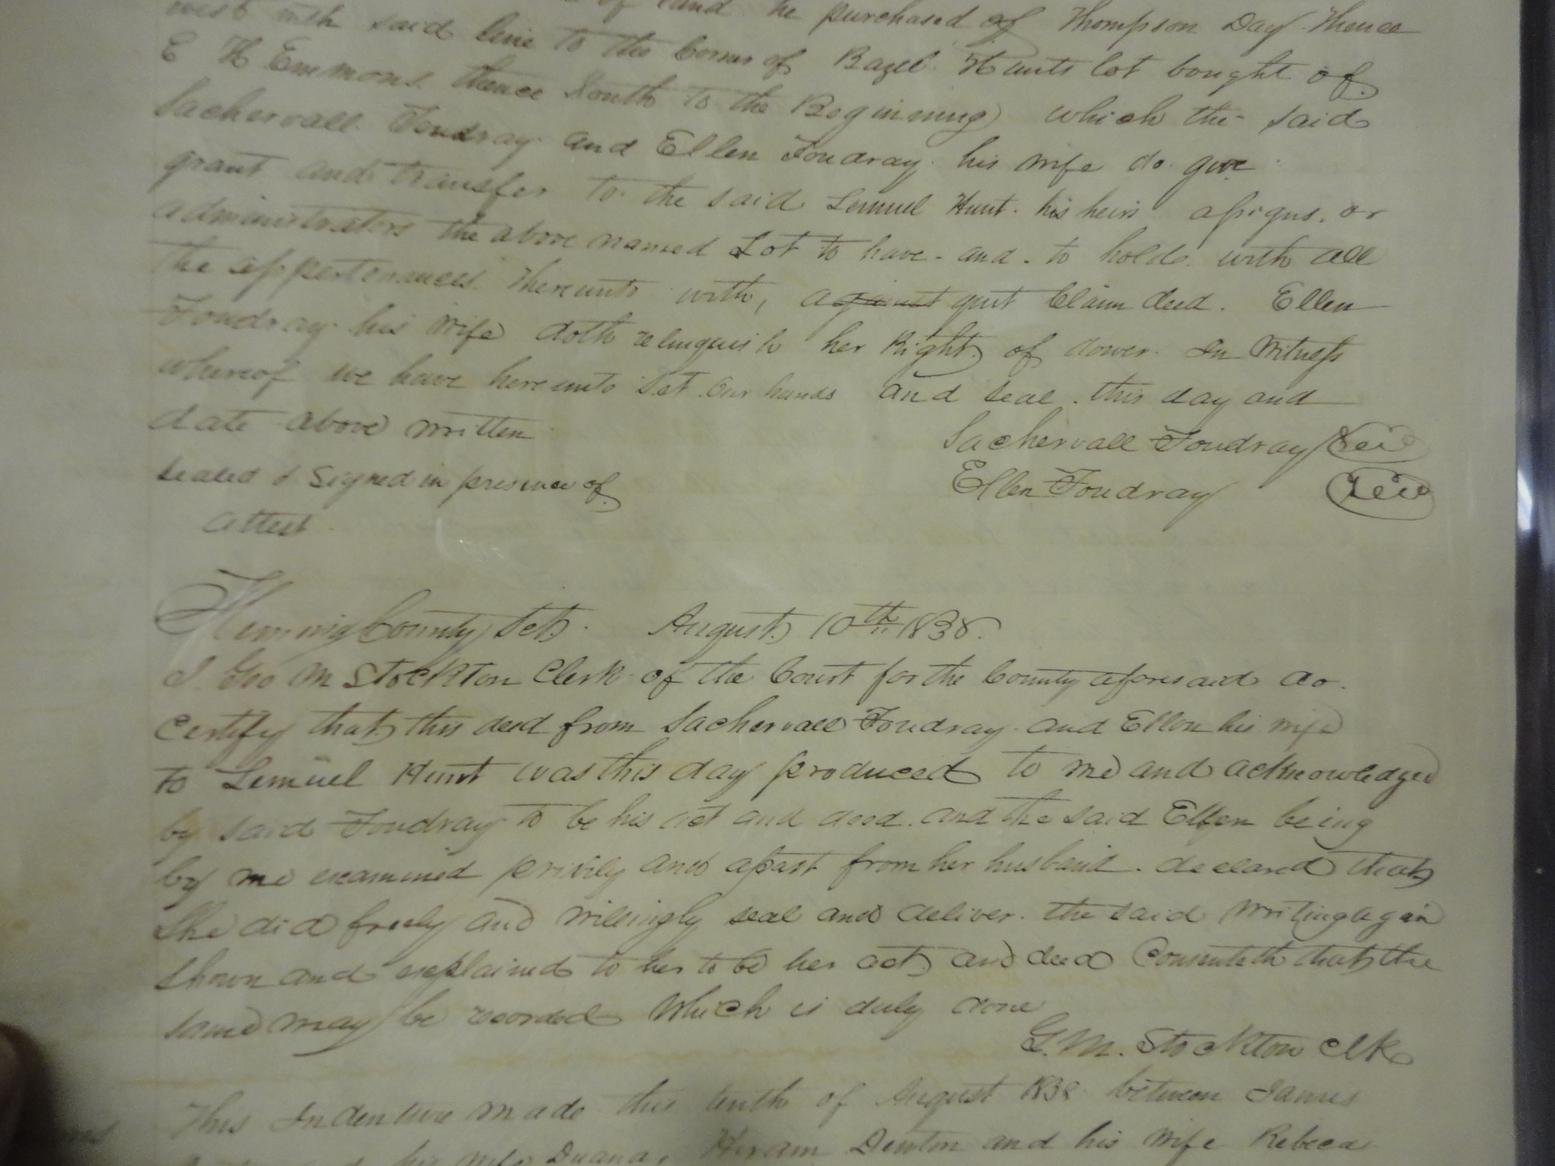 of land he purchased of Thompson Day. Thence
west with said line to the Corner of Bazel Hunts lot bought of
E H Emmons. thence South to the Beginning which the said
Sachervall Foudray and Ellen Foudray his wife do give
grant and transfer to the said Lemuel Hunt. his heirs assigns. or
administrators the above named Lot to have. and. to hold. with all
the appertenances thereunto with, against quit Claim deed. Ellen
Foudray his wife doth relinquish her Right of dower. In Witness
whereof we have hereunto set our hands and seal. this day and
date above written
Sachervall Foudray Seal
Sealed & Signed in presence of
Ellen Foudray Seal
Attest
Fleming County Sct. August 10th 1838.
I. Geo M Stockton Clerk of the Court for the County aforesaid do.
Certify that this deed from Sachervall Foudray and Ellen his wife
to Lemuel Hunt was this day produced to me and acknowledged
by said Foudray to be his act and deed. and the said Ellen being
by me examined privily and apart from her husband. declared that
She did freely and willingly seal and deliver. the said Writing again
shown and explained to her to be her act and deed Consenteth that the
same may be recorded Which is duly done
G. M. Stockton Clk
This Indenture made this tenth of August 1838 between James
his wife Duana, Hiram Denton and his Wife Rebeca